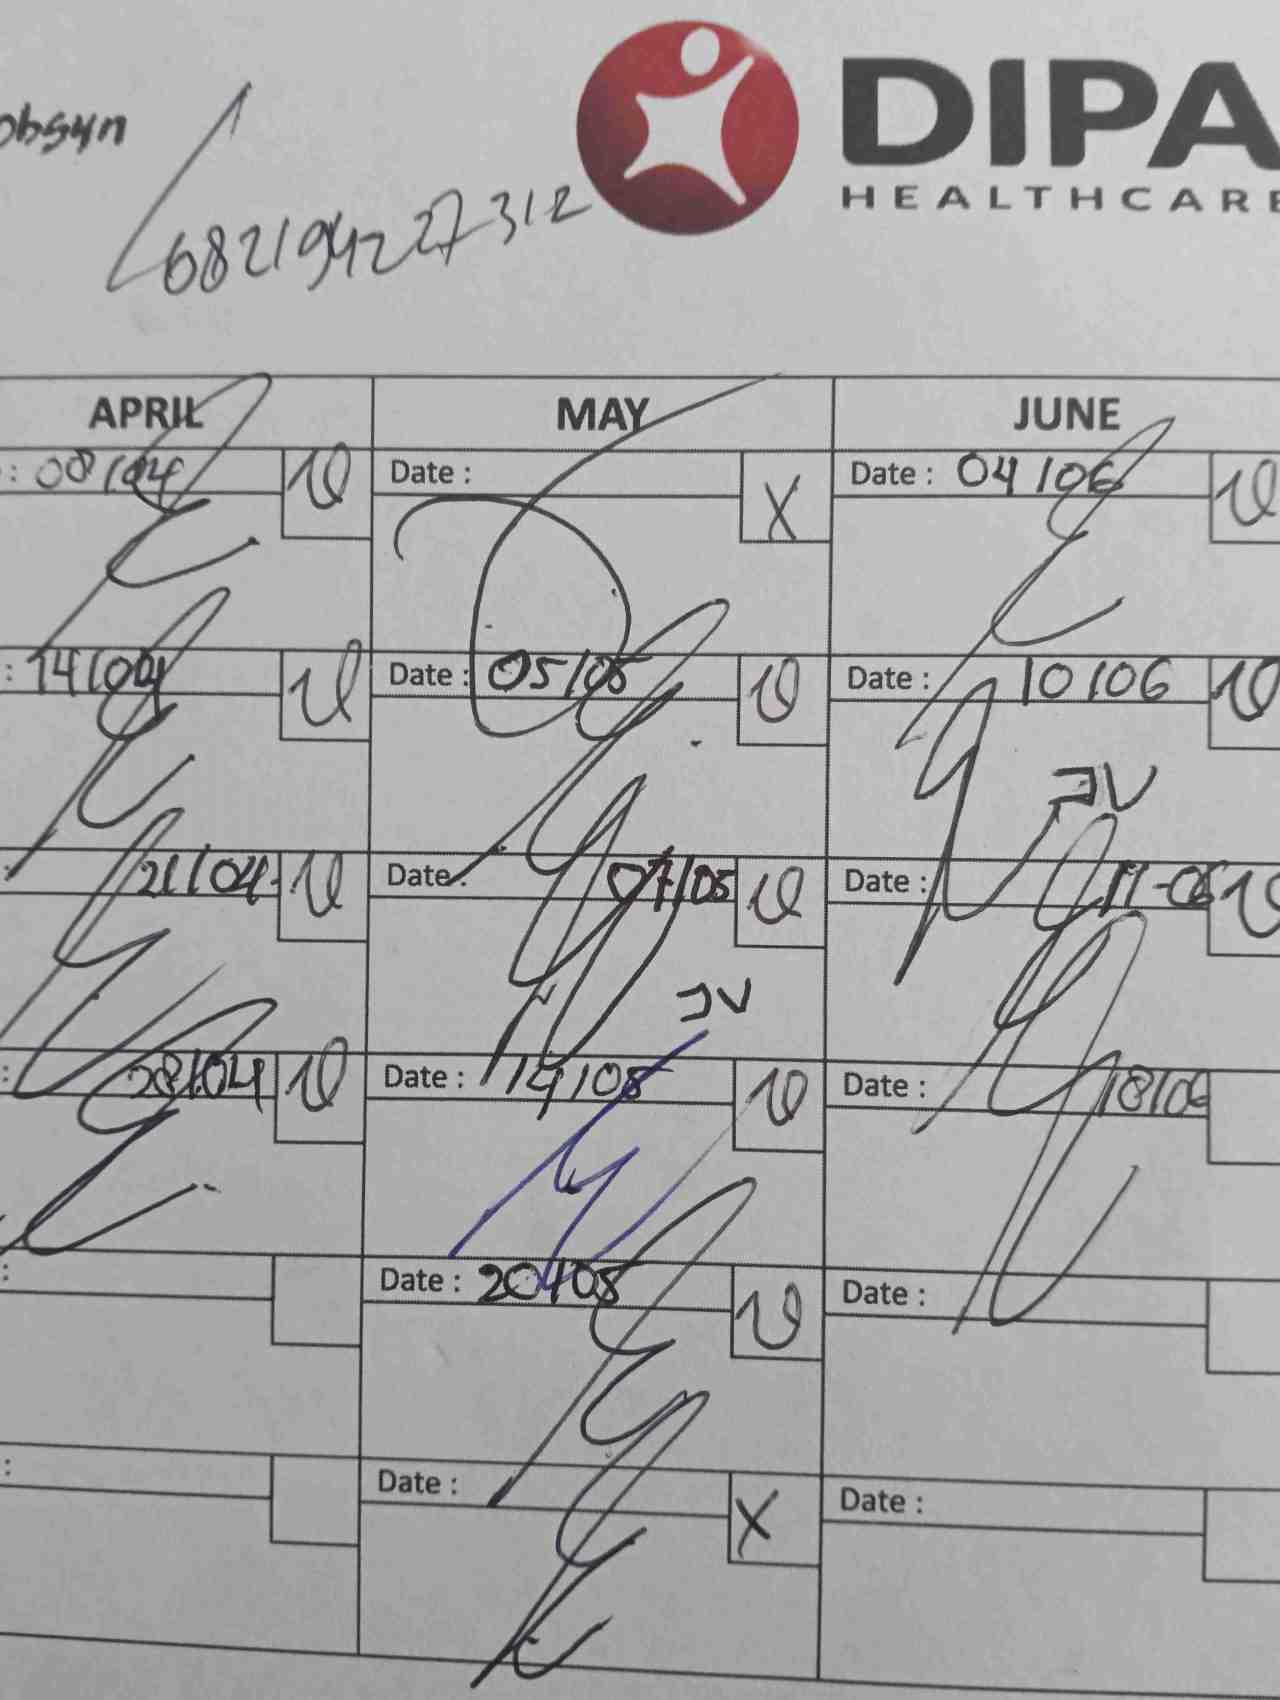 DIPA
HEALTHCARE
obsyn
082194227312
APRIL MAY JUNE
: 08/04 V Date : X Date : 04/06 V
: 14/04 V Date : 05/05 V Date : 10/06 V
JV
21/04 V Date : 07/05 V Date : 11-06 V
JV
: 28/04 V Date : 14/05 V Date : 18/06
: Date : 20/05 V Date :
: Date : X Date :